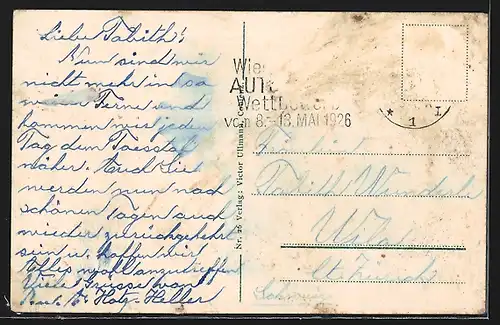 Liebe Tabith!
Nun sind wir
nicht mehr in so
weiter Ferne und
kommen mit jedem
Tag dem Tösstal
näher. Auch Sie
werden nun nach
schönen Tagen auch
wieder zurückgekehrt
sein u. hoffen wir
Alles wohl anzutreffen
Viele Grüsse von
Hotz-Heller
Nr. 26 Verlag: Victor Ullmann,
Wie
AUTO
Wettbewerb
vom 8.-13. MAI 1926
* 1
Fräulein
Tabith Wunderli
Kt. Zürich
Schweiz